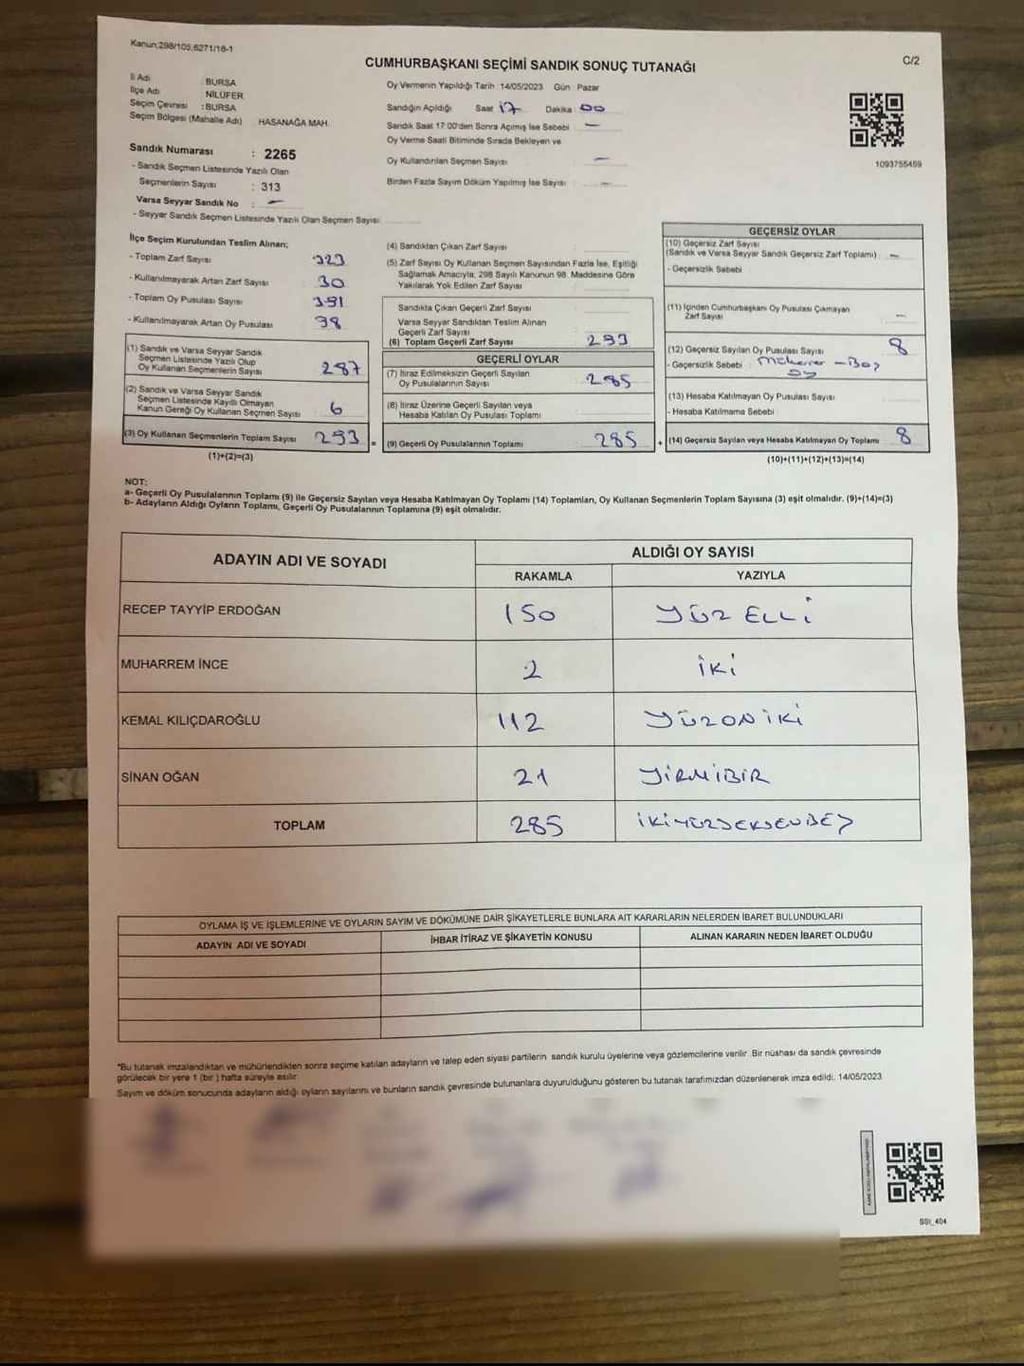 Kanun;298/105,6271/16-1
CUMHURBAŞKANI SEÇİMİ SANDIK SONUÇ TUTANAĞI
C/2
İl Adı BURSA
İlçe Adı NİLÜFER
Seçim Çevresi : BURSA
Seçim Bölgesi (Mahalle Adı) HASANAĞA MAH.
Oy Vermenin Yapıldığı Tarih 14/05/2023 Gün Pazar
Sandığın Açıldığı Saat 17 Dakika 00
Sandık Saat 17:00'den Sonra Açılmış İse Sebebi —
Oy Verme Saati Bitiminde Sırada Bekleyen ve
Oy Kullandırılan Seçmen Sayısı —
Birden Fazla Sayım Döküm Yapılmış İse Sayısı —
1093755459
Sandık Numarası : 2265
- Sandık Seçmen Listesinde Yazılı Olan
Seçmenlerin Sayısı : 313
Varsa Seyyar Sandık No : —
- Seyyar Sandık Seçmen Listesinde Yazılı Olan Seçmen Sayısı
İlçe Seçim Kurulundan Teslim Alınan;
- Toplam Zarf Sayısı 323
- Kullanılmayarak Artan Zarf Sayısı 30
- Toplam Oy Pusulası Sayısı
- Kullanılmayarak Artan Oy Pusulası
(1) Sandık ve Varsa Seyyar Sandık
Seçmen Listesinde Yazılı Olup
Oy Kullanan Seçmenlerin Sayısı 287
(2) Sandık ve Varsa Seyyar Sandık
Seçmen Listesinde Kayıtlı Olmayan
Kanun Gereği Oy Kullanan Seçmen Sayısı 6
(3) Oy Kullanan Seçmenlerin Toplam Sayısı 293 =
(1)+(2)=(3)
(4) Sandıktan Çıkan Zarf Sayısı
(5) Zarf Sayısı Oy Kullanan Seçmen Sayısından Fazla İse, Eşitliği
Sağlamak Amacıyla, 298 Sayılı Kanunun 98. Maddesine Göre
Yakılarak Yok Edilen Zarf Sayısı
Sandıkta Çıkan Geçerli Zarf Sayısı
Varsa Seyyar Sandıktan Teslim Alınan
Geçerli Zarf Sayısı
(6) Toplam Geçerli Zarf Sayısı 293
GEÇERLİ OYLAR
(7) İtiraz Edilmeksizin Geçerli Sayılan
Oy Pusulalarının Sayısı 285
(8) İtiraz Üzerine Geçerli Sayılan veya
Hesaba Katılan Oy Pusulası Toplamı
(9) Geçerli Oy Pusulalarının Toplamı 285 +
GEÇERSİZ OYLAR
(10) Geçersiz Zarf Sayısı
(Sandık ve Varsa Seyyar Sandık Geçersiz Zarf Toplamı) —
- Geçersizlik Sebebi
(11) İçinden Cumhurbaşkanı Oy Pusulası Çıkmayan
Zarf Sayısı —
(12) Geçersiz Sayılan Oy Pusulası Sayısı 8
- Geçersizlik Sebebi : – Boş
oy
(13) Hesaba Katılmayan Oy Pusulası Sayısı
- Hesaba Katılmama Sebebi
(14) Geçersiz Sayılan veya Hesaba Katılmayan Oy Toplamı 8
(10)+(11)+(12)+(13)=(14)
NOT:
a- Geçerli Oy Pusulalarının Toplamı (9) ile Geçersiz Sayılan veya Hesaba Katılmayan Oy Toplamı (14) Toplamları, Oy Kullanan Seçmenlerin Toplam Sayısına (3) eşit olmalıdır. (9)+(14)=(3)
b- Adayların Aldığı Oyların Toplamı, Geçerli Oy Pusulalarının Toplamına (9) eşit olmalıdır.
ADAYIN ADI VE SOYADI
ALDIĞI OY SAYISI
RAKAMLA YAZIYLA
RECEP TAYYİP ERDOĞAN 150 YÜZ ELLİ
MUHARREM İNCE 2 İKİ
KEMAL KILIÇDAROĞLU 112 YÜZONİKİ
SİNAN OĞAN 21 YİRMİBİR
TOPLAM 285 İKİYÜZSEKSENBEŞ
OYLAMA İŞ VE İŞLEMLERİNE VE OYLARIN SAYIM VE DÖKÜMÜNE DAİR ŞİKAYETLERLE BUNLARA AİT KARARLARIN NELERDEN İBARET BULUNDUKLARI
ADAYIN ADI VE SOYADI İHBAR İTİRAZ VE ŞİKAYETİN KONUSU ALINAN KARARIN NEDEN İBARET OLDUĞU
*Bu tutanak imzalandıktan ve mühürlendikten sonra seçime katılan adayların ve talep eden siyasi partilerin sandık kurulu üyelerine veya gözlemcilerine verilir. Bir nüshası da sandık çevresinde
görülecek bir yere 1 (bir ) hafta süreyle asılır.
Sayım ve döküm sonucunda adayların aldığı oyların sayılarını ve bunların sandık çevresinde bulunanlara duyurulduğunu gösteren bu tutanak tarafımızdan düzenlenerek imza edildi. 14/05/2023
SSI_404